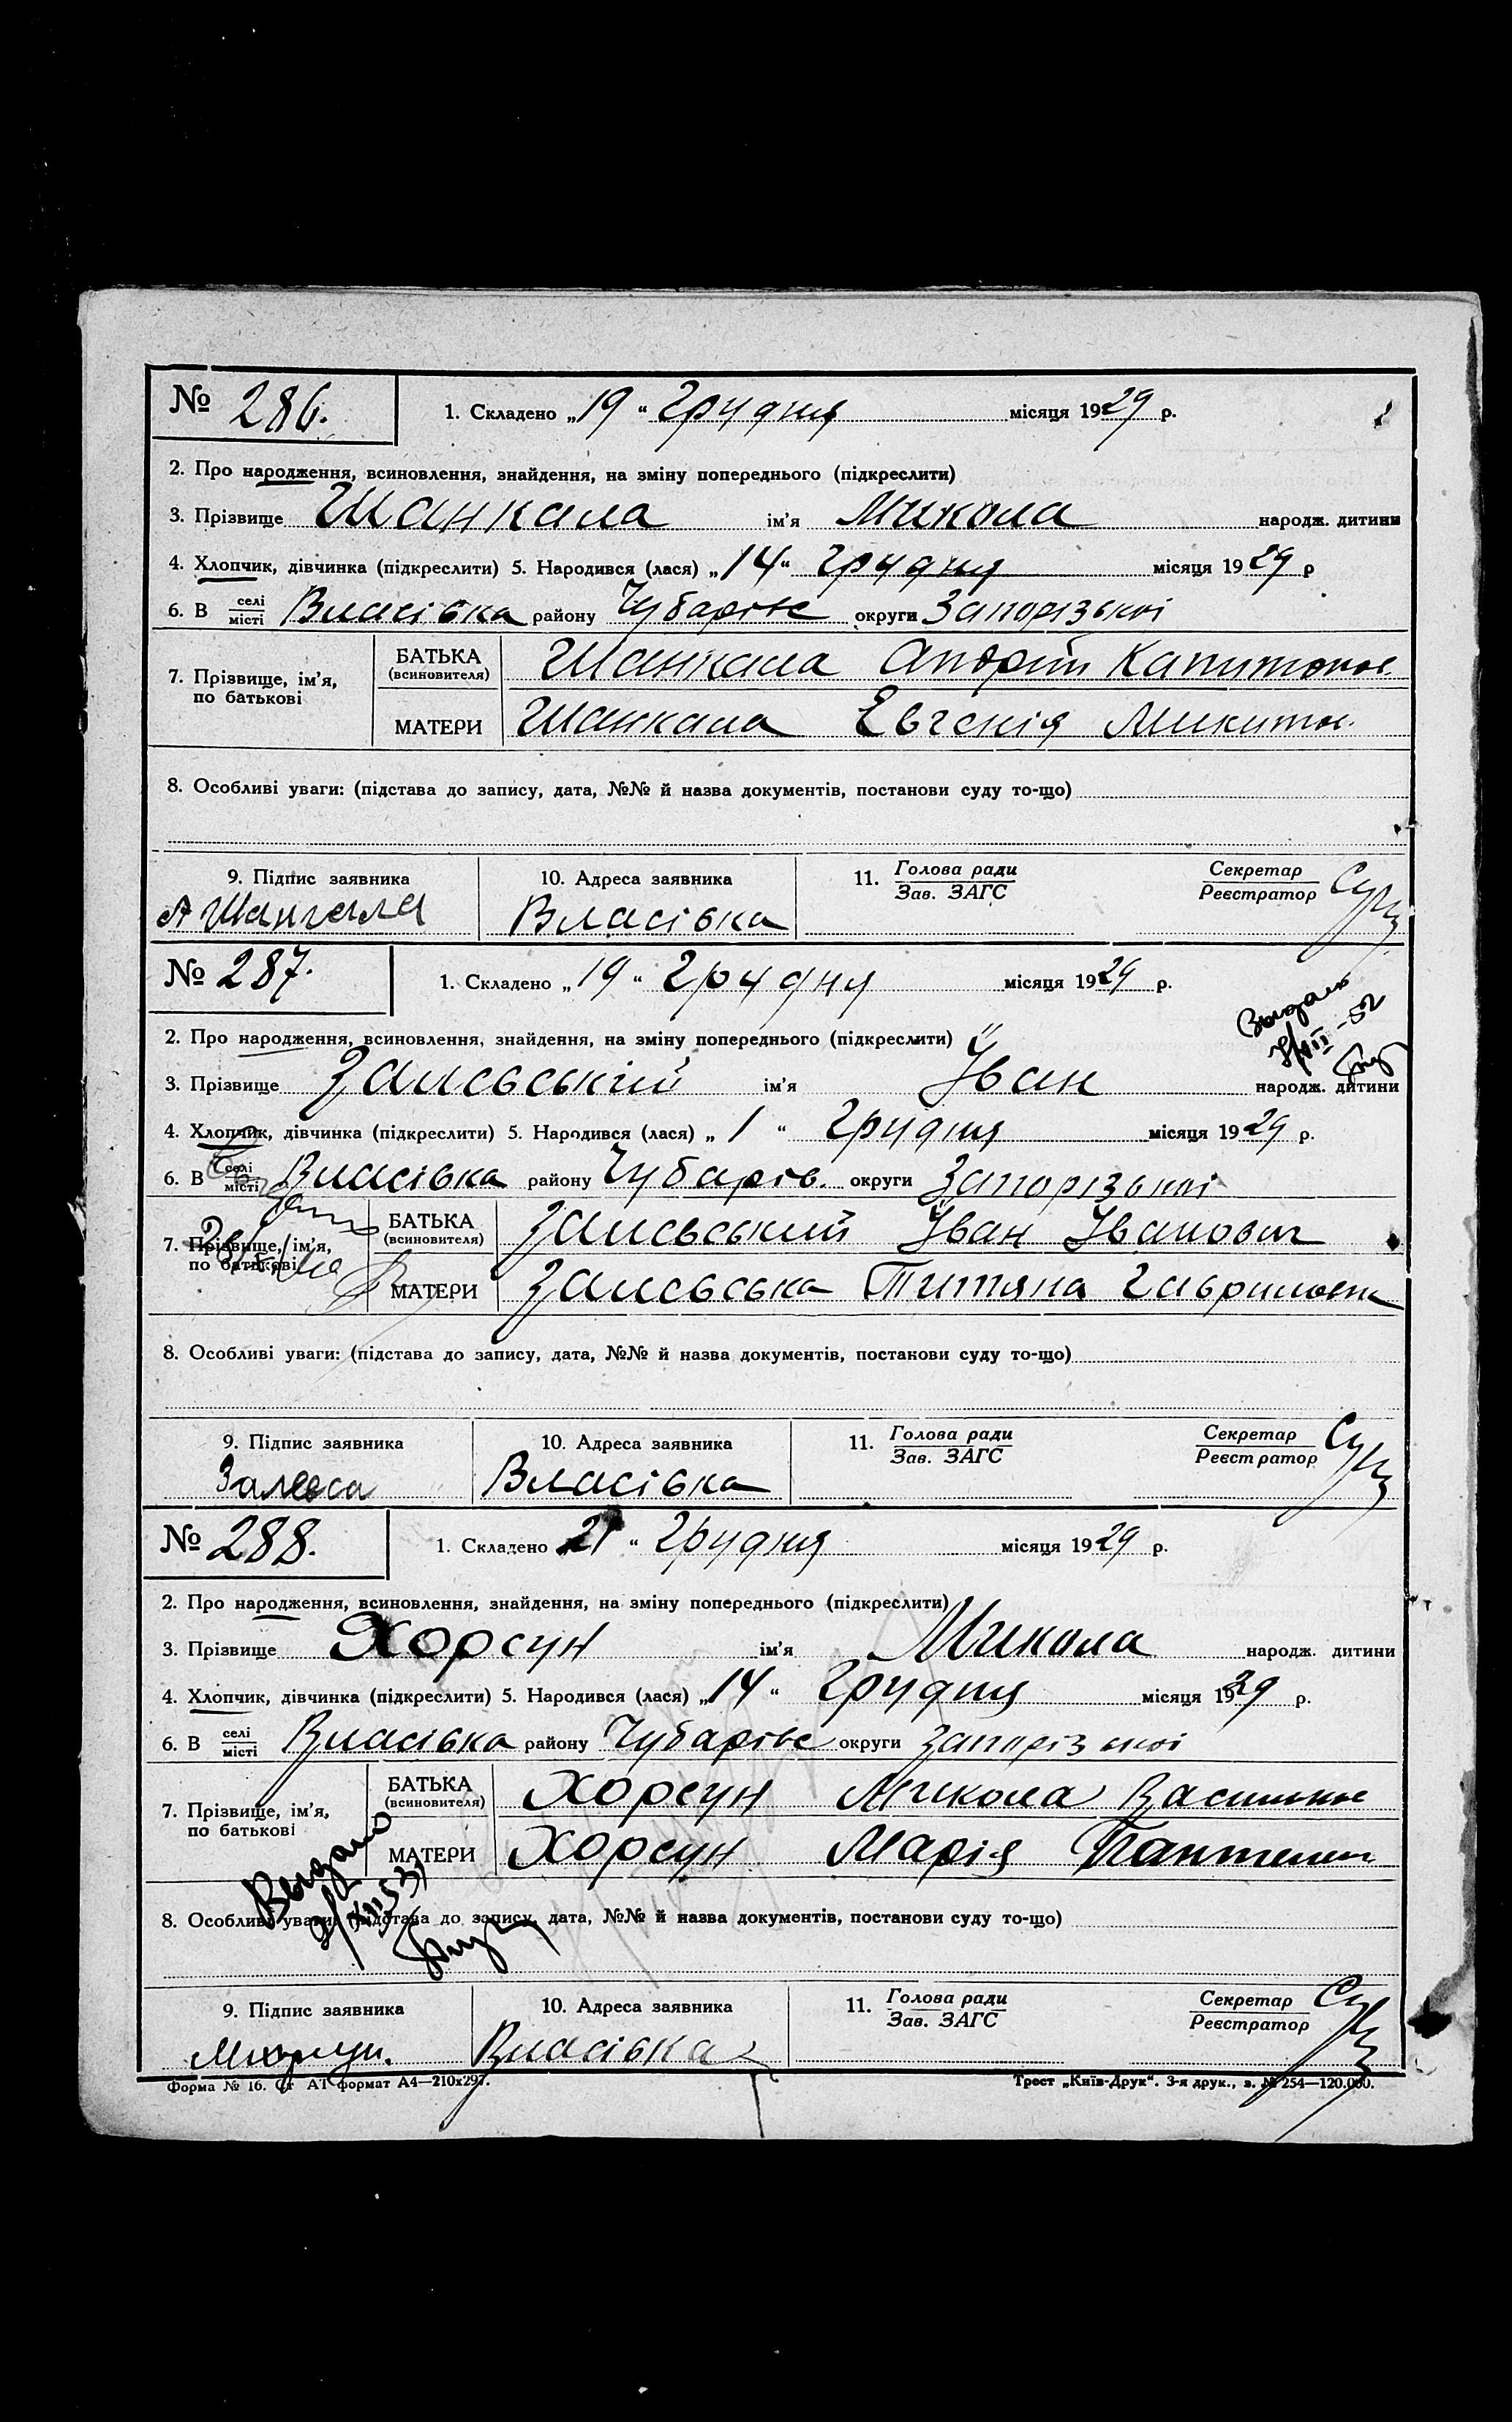 № 286. 1. Складено „19“ Грудня місяця 1929 р.
2. Про народження, всиновлення, знайдення, на зміну попереднього (підкреслити)
3. Прізвище Шанкала ім'я Микола народж. дитини
4. Хлопчик, дівчинка (підкреслити) 5. Народився (лася) „14“ Грудня місяця 1929 р
6. В селі/місті Власівка району Чубарівс округи Запорізької
7. Прізвище, ім'я, по батькові
БАТЬКА (всиновителя) Шанкала Андрій Капитонов.
МАТЕРИ Шанкала Евгенія Микитов.
8. Особливі уваги: (підстава до запису, дата, №№ й назва документів, постанови суду то-що)
9. Підпис заявника 10. Адреса заявника 11. Голова ради/Зав. ЗАГС Секретар/Реєстратор
А Шанкала Власівка
№ 287. 1. Складено „19“ Грудня місяця 1929 р.
2. Про народження, всиновлення, знайдення, на зміну попереднього (підкреслити)
3. Прізвище Залевський ім'я Іван народж. дитини
4. Хлопчик, дівчинка (підкреслити) 5. Народився (лася) „1“ Грудня місяця 1929 р.
6. В селі/місті Власівка району Чубарів. округи Запорізької
7. Прізвище, ім'я, по батькові
БАТЬКА (всиновителя) Залевський Іван Іванович
МАТЕРИ Залевська Титяна Гавриловн
8. Особливі уваги: (підстава до запису, дата, №№ й назва документів, постанови суду то-що)
9. Підпис заявника 10. Адреса заявника 11. Голова ради/Зав. ЗАГС Секретар/Реєстратор
Власівка
№ 288. 1. Складено „21“ Грудня місяця 1929 р.
2. Про народження, всиновлення, знайдення, на зміну попереднього (підкреслити)
3. Прізвище Хорсун ім'я Микола народж. дитини
4. Хлопчик, дівчинка (підкреслити) 5. Народився (лася) „14“ Грудня місяця 1929 р.
6. В селі/місті Власівка району Чубарівс округи Запорізької
7. Прізвище, ім'я, по батькові
БАТЬКА (всиновителя) Хорсун Микола Васильов
МАТЕРИ Хорсун Марія
Выдано
8. Особливі уваги: (підстава до запису, дата, №№ й назва документів, постанови суду то-що)
9. Підпис заявника 10. Адреса заявника 11. Голова ради/Зав. ЗАГС Секретар/Реєстратор
Власівка
Форма № 16. Ст АТ формат А4—210х297. Трест „Київ-Друк“. 3-я друк., з. № 254—120.000.